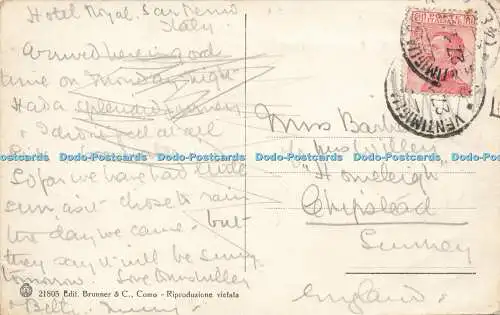 Hotel Royal, San Remo
Italy.
Arrived here in good
time on Monday night
Had a splendid journey
& I did not feel at all
So far we have had little
sun as it chose to rain
the day we came - but
they say it will be sunny
tomorrow Love
Betty
Miss
c/o Mrs Willey
"Homeleigh"
Chipstead
Surrey
England
VENTIMIGLIA
Dodo-Postcards Dodo-Postcards Dodo-Postcards Dodo-Postcards Dodo-Postcards Dodo-Postcards Dodo-Postcards
21805 Edit. Brunner & C., Como - Riproduzione vietata